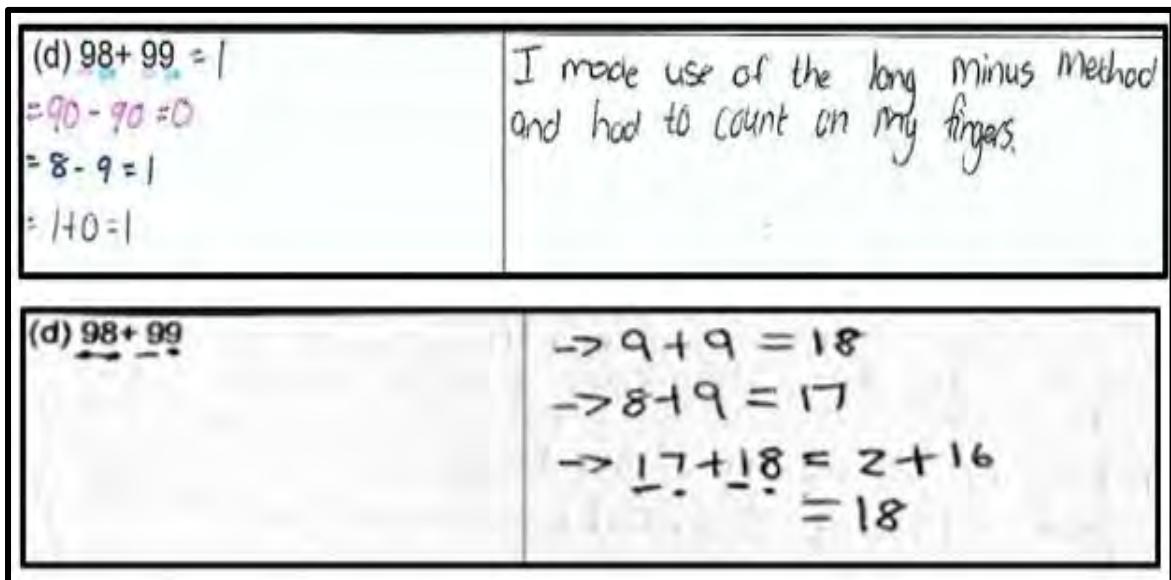 (d) 98+ 99 = 1
= 90 - 90 = 0
= 8 - 9 = 1
= 1+0 = 1
I made use of the long minus method
and had to count on my fingers.
(d) 98+ 99
-> 9 + 9 = 18
-> 8+9 = 17
-> 17+18 = 2+16
= 18